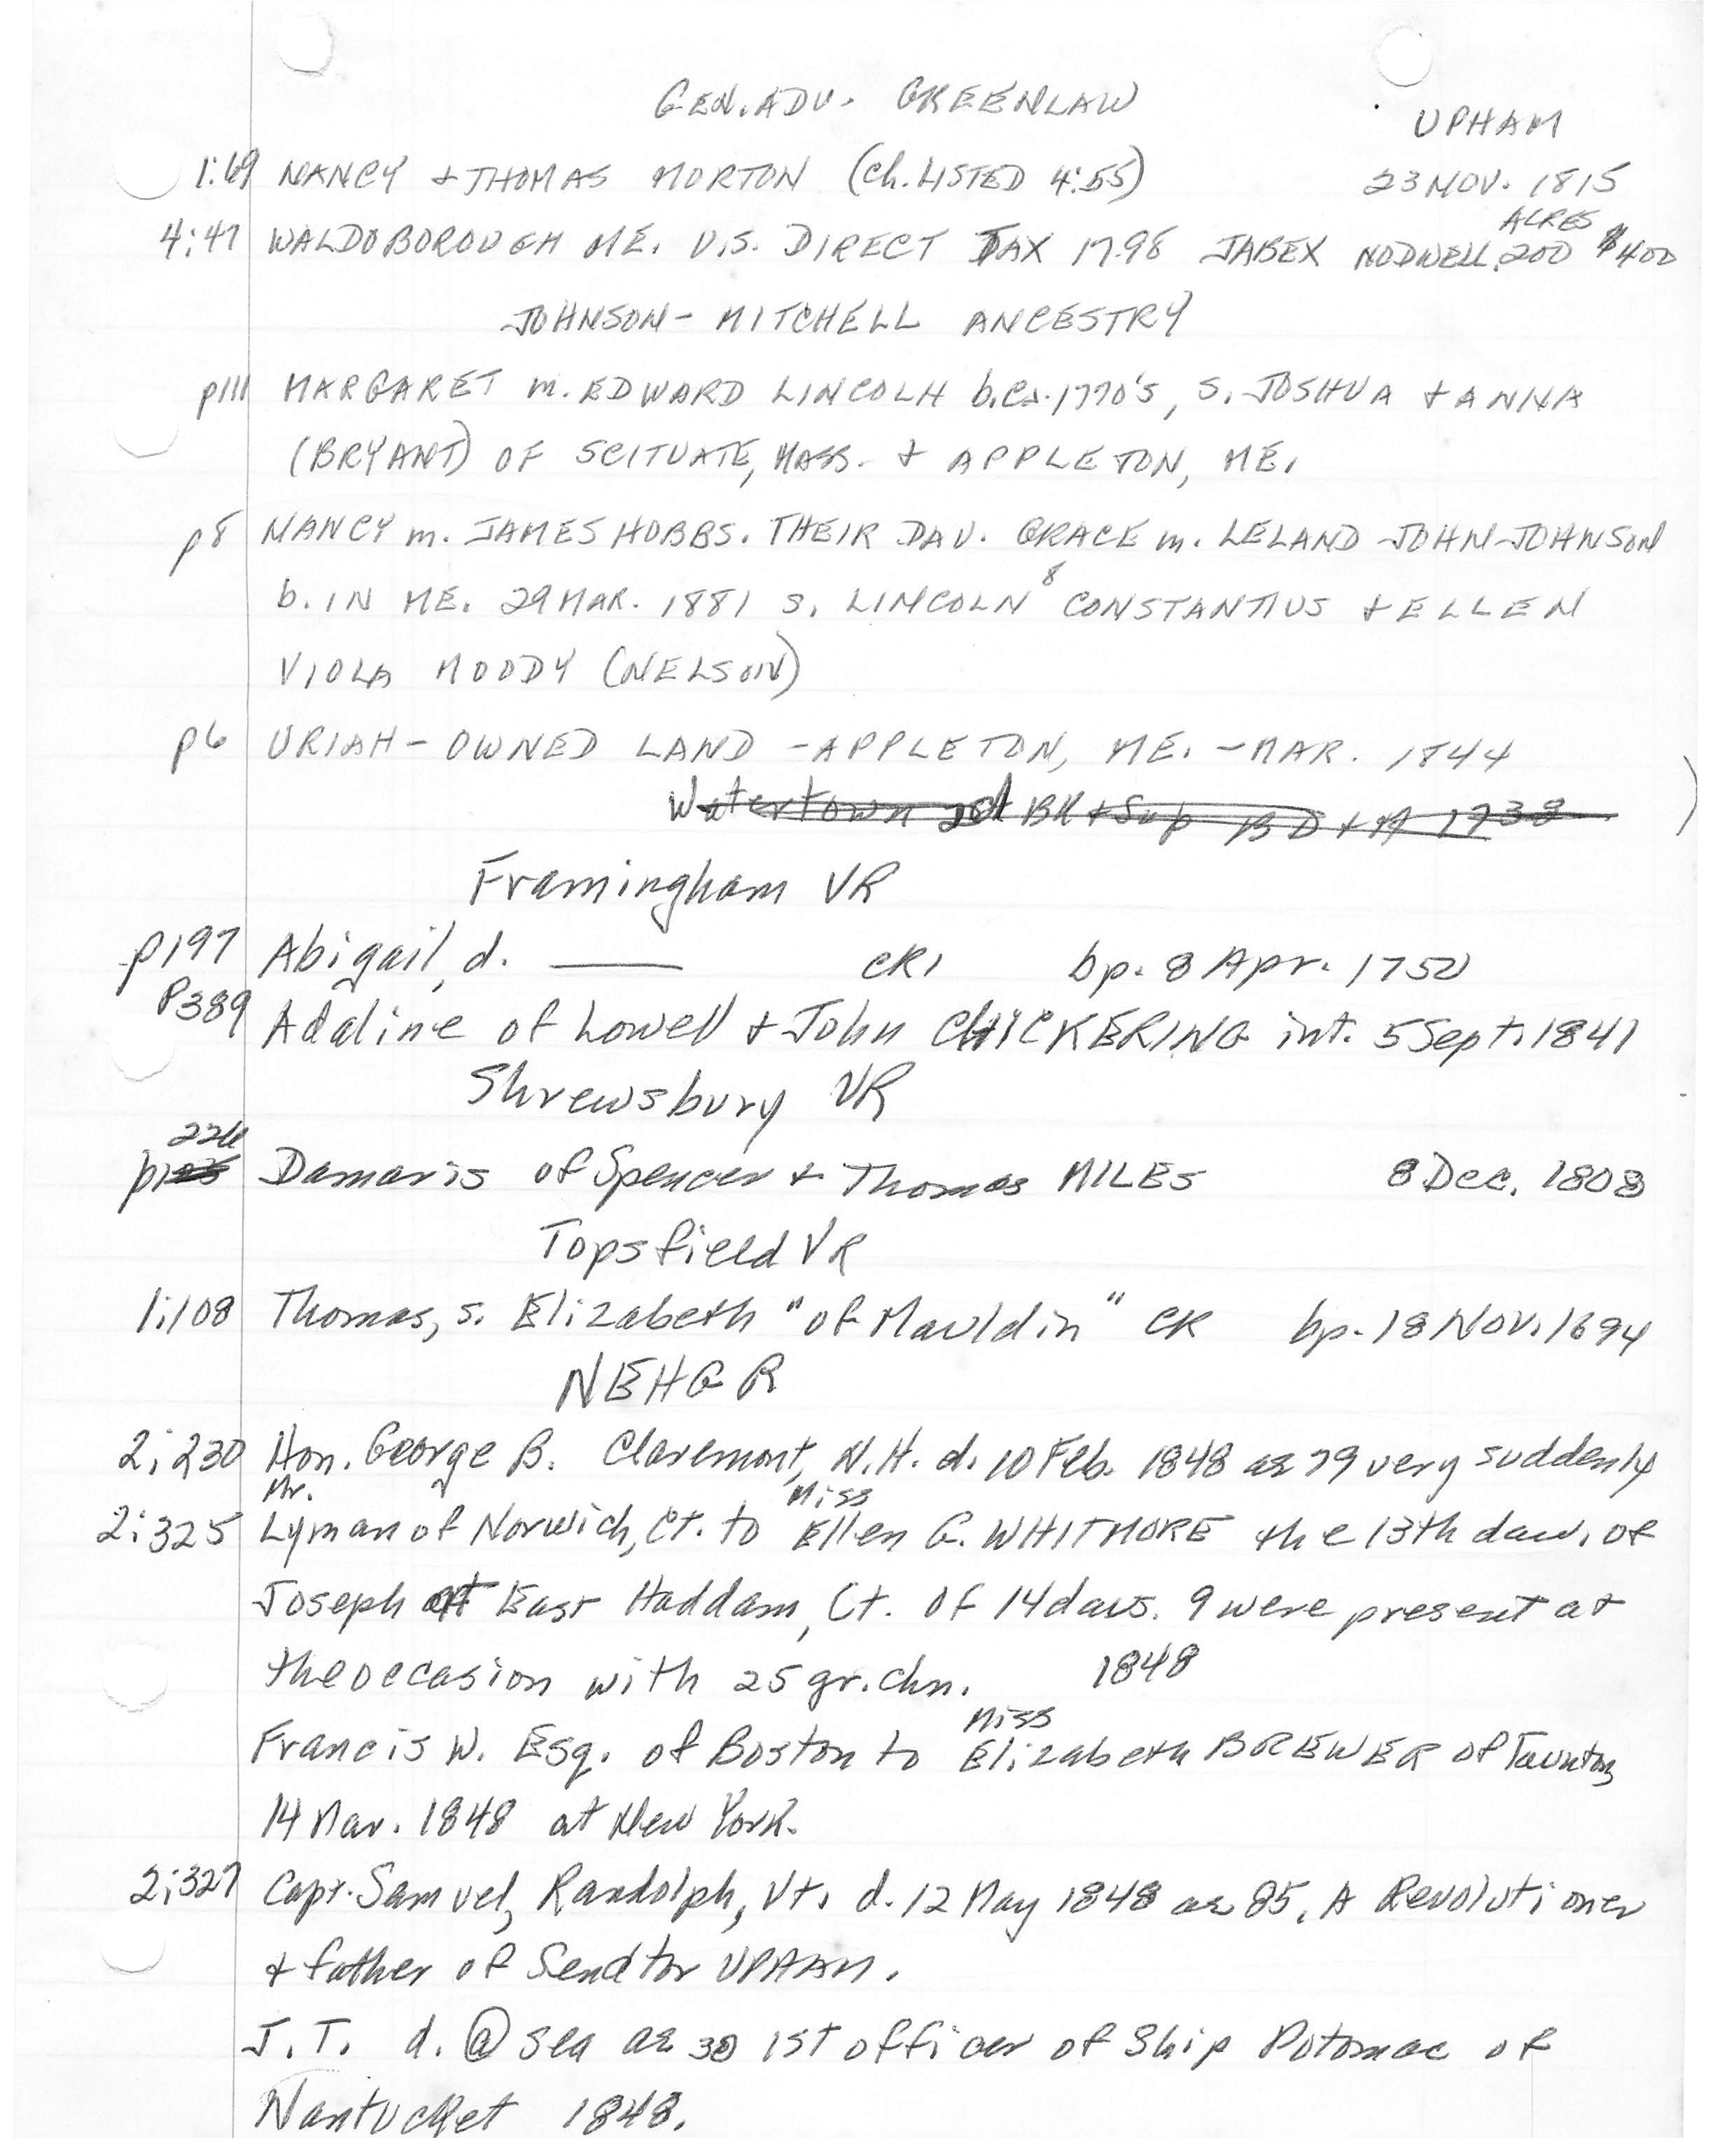 GEN. ADV. GREENLAW
UPHAM
1:69 NANCY + THOMAS MORTON (Ch. LISTED 4:55) 23 NOV. 1815
4:47 WALDOBOROUGH ME. U.S. DIRECT TAX 1798 JABEX NODWELL 200 ACRES $400
JOHNSON - MITCHELL ANCESTRY
p111 MARGARET m. EDWARD LINCOLN b. ca. 1770's, S. JOSHUA + ANNA
(BRYANT) OF SCITUATE, MASS. + APPLETON, ME.
p8 NANCY m. JAMES HOBBS. THEIR DAU. GRACE m. LELAND JOHN JOHNSON
b. IN ME. 29 MAR. 1881 s. LINCOLN⁸ CONSTANTIUS + ELLEN
VIOLA MOODY (NELSON)
p6 URIAH - OWNED LAND - APPLETON, ME. - MAR. 1844
Watertown BK + Sup BD + M 1738
Framingham VR
p197 Abigail, d. —— CR1 bp. 8 Apr. 1750
P389 Adaline of Lowell + John CHICKERING int. 5 Sept. 1841
Shrewsbury VR
p 226 Damaris of Spencer + Thomas MILES 8 Dec. 1808
Topsfield VR
1:108 Thomas, s. Elizabeth "of Mauldin" CR bp. 18 Nov. 1694
NEHGR
2:230 Hon. George B. Claremont, N.H. d. 10 Feb. 1848 ae 79 very suddenly
2:325 Mr. Lyman of Norwich, Ct. to Miss Ellen G. WHITMORE the 13th dau. of
Joseph at East Haddam, Ct. Of 14 daus. 9 were present at
the occasion with 25 gr. chn. 1848
Francis W. Esq. of Boston to Miss Elizabeth BREWER of Taunton
14 Mar. 1848 at New York.
2:327 Capt. Samuel, Randolph, Vt. d. 12 May 1848 ae 85. A Revolutioner
+ father of Senator UPHAM.
J. T. d. @ sea ae 30 1st officer of Ship Potomac of
Nantucket 1848.